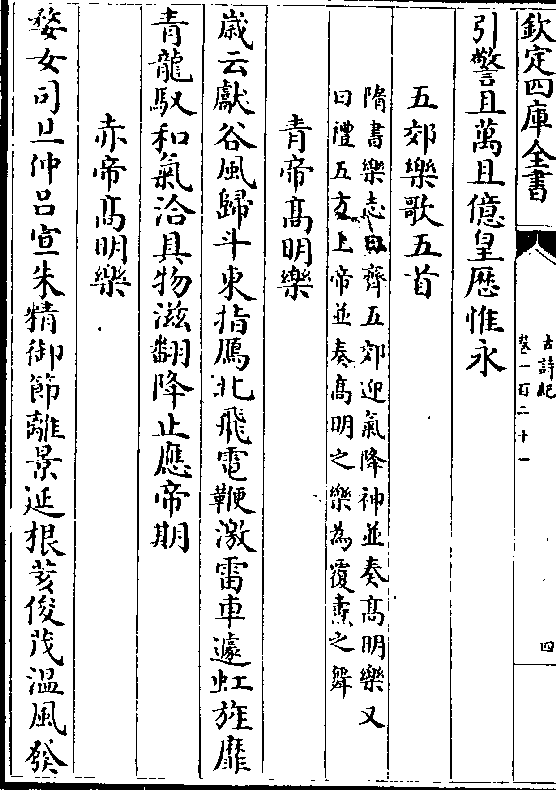 欽定四庫全書
古詩紀
卷一百二十一
四
引警且萬且億皇歴惟永
五郊樂歌五首
隋書樂志曰齊五郊迎氣降神並奏髙明樂又
曰禮五方上帝並奏髙明之樂為覆燾之舞
青帝髙明樂
歲云獻谷風歸斗東指鴈北飛電鞭激雷車遽虹旌靡
青龍馭和氣洽具物滋翻降止應帝期
赤帝髙明樂
婺女司旦仲呂宣朱精御節離景延根荄俊茂溫風發